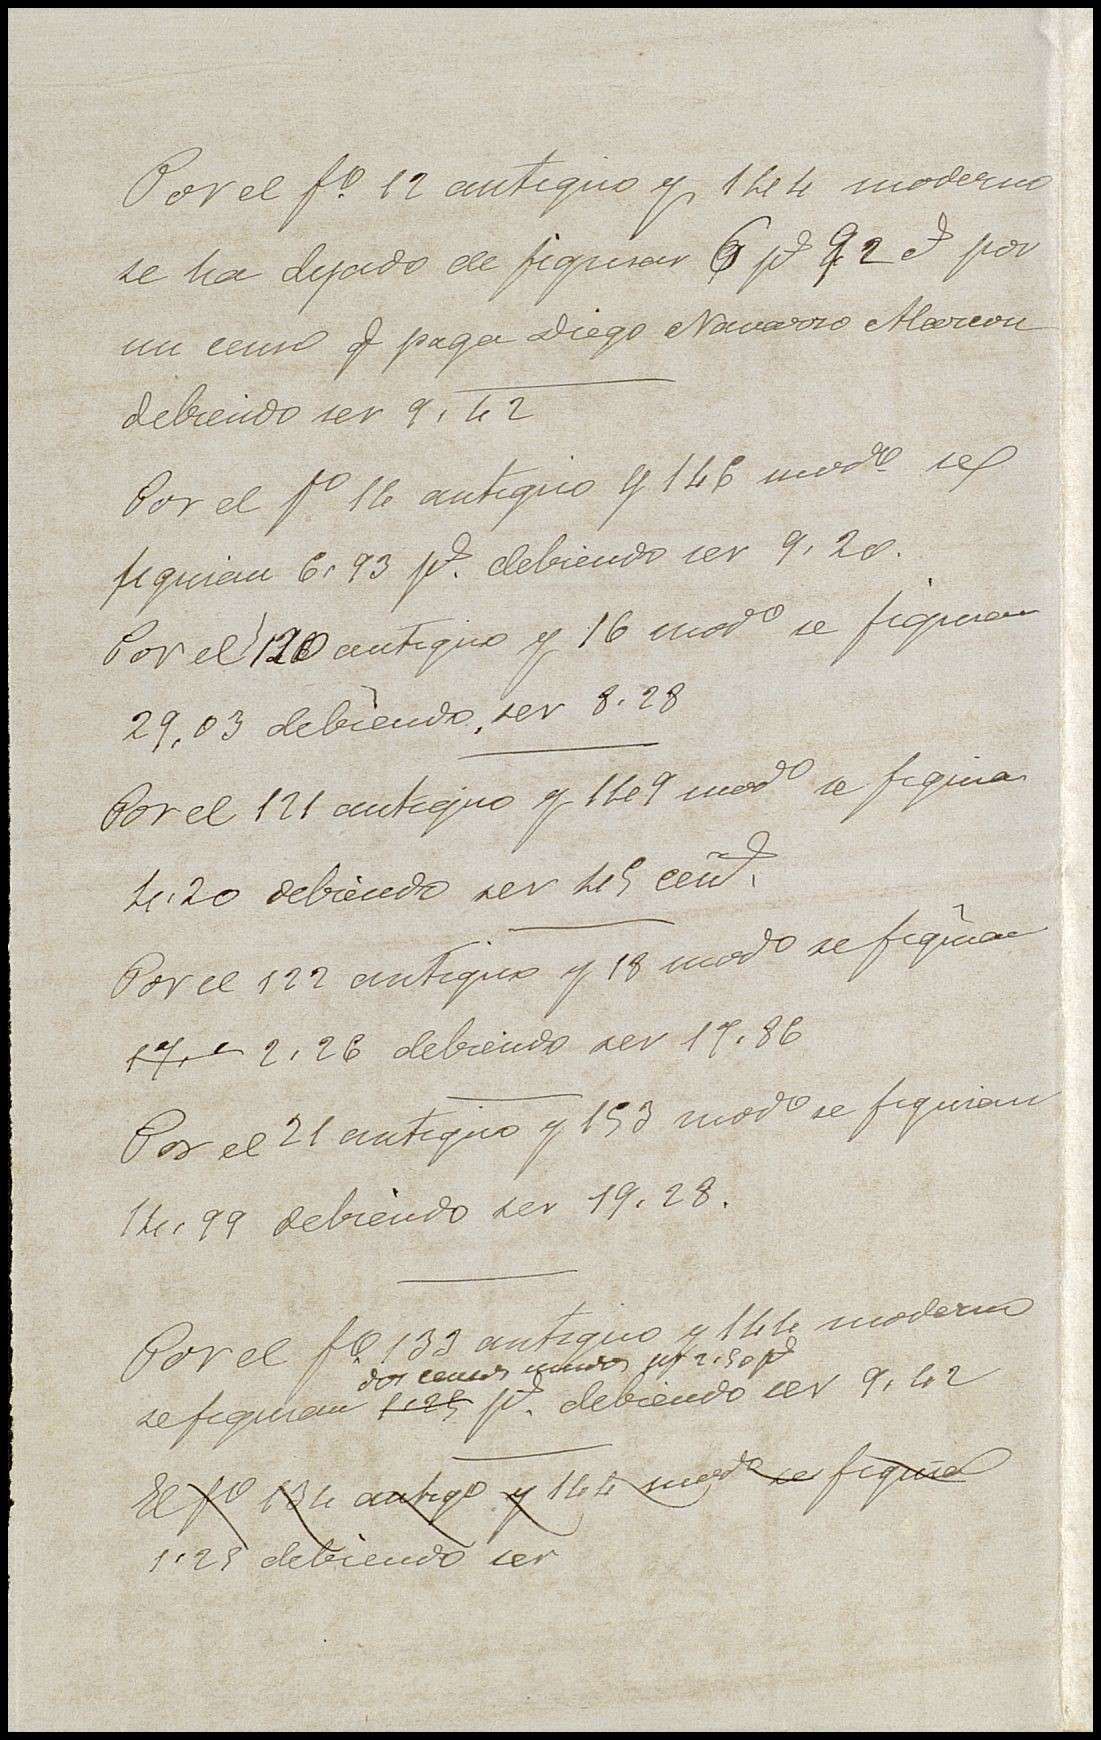 Por el fº 12 antiguo y 144 moderno
se ha dejado de figurar 6 pts 92 cs por
un censo q paga Diego Navarro Alarcon
debiendo ser 9,42
Por el fº 14 antiguo y 146 modº se
figuran 6,93 pts. debiendo ser 9,20.
Por el 120 antiguo y 16 modº se figuran
29,03 debiendo, ser 8,28
Por el 121 antiguo y 149 modº se figura
4,20 debiendo ser 45 cents.
Por el 122 antiguo y 18 modº se figuran
17, 2,26 debiendo ser 17,86
Por el 21 antiguo y 153 modº se figuran
14,99 debiendo ser 19,28.
Por el fº 133 antiguo y 144 moderno
dos censos unidos pr 2,50 pts
se figuran 1,25 pts. debiendo ser 9,42
El fº 134 antigo y 144 modº se figura
1,25 debiendo ser